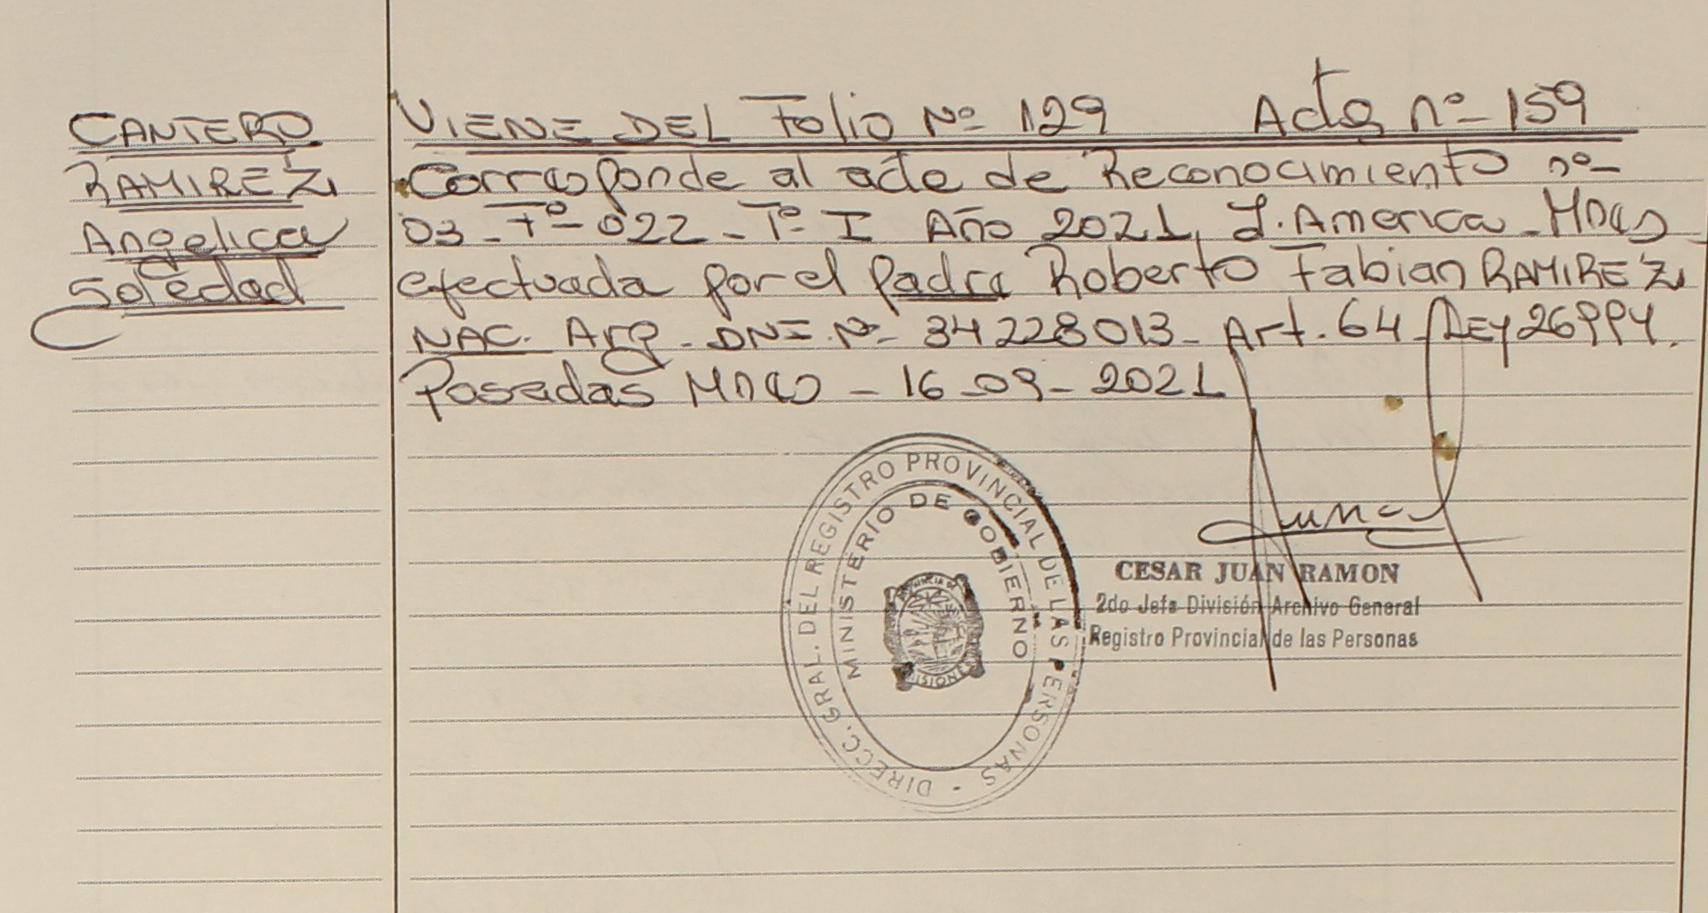 CANTERO
RAMIREZ
Angelica
Soledad
VIENE DEL Folio Nº 129 Acta nº 159
Corresponde al acta de Reconocimiento nº
03 - Fº 022 - Tº I Año 2021, L. America - Mnes
efectuada por el padre Roberto Fabian RAMIREZ
NAC. Arg. DNI Nº 34228013 - Art. 64 - LEY 26994.
Posadas Mnes - 16-09-2021
DIRECC. GRAL. DEL REGISTRO PROVINCIAL DE LAS PERSONAS
MINISTERIO DE GOBIERNO
CESAR JUAN RAMON
2do Jefe División Archivo General
Registro Provincial de las Personas